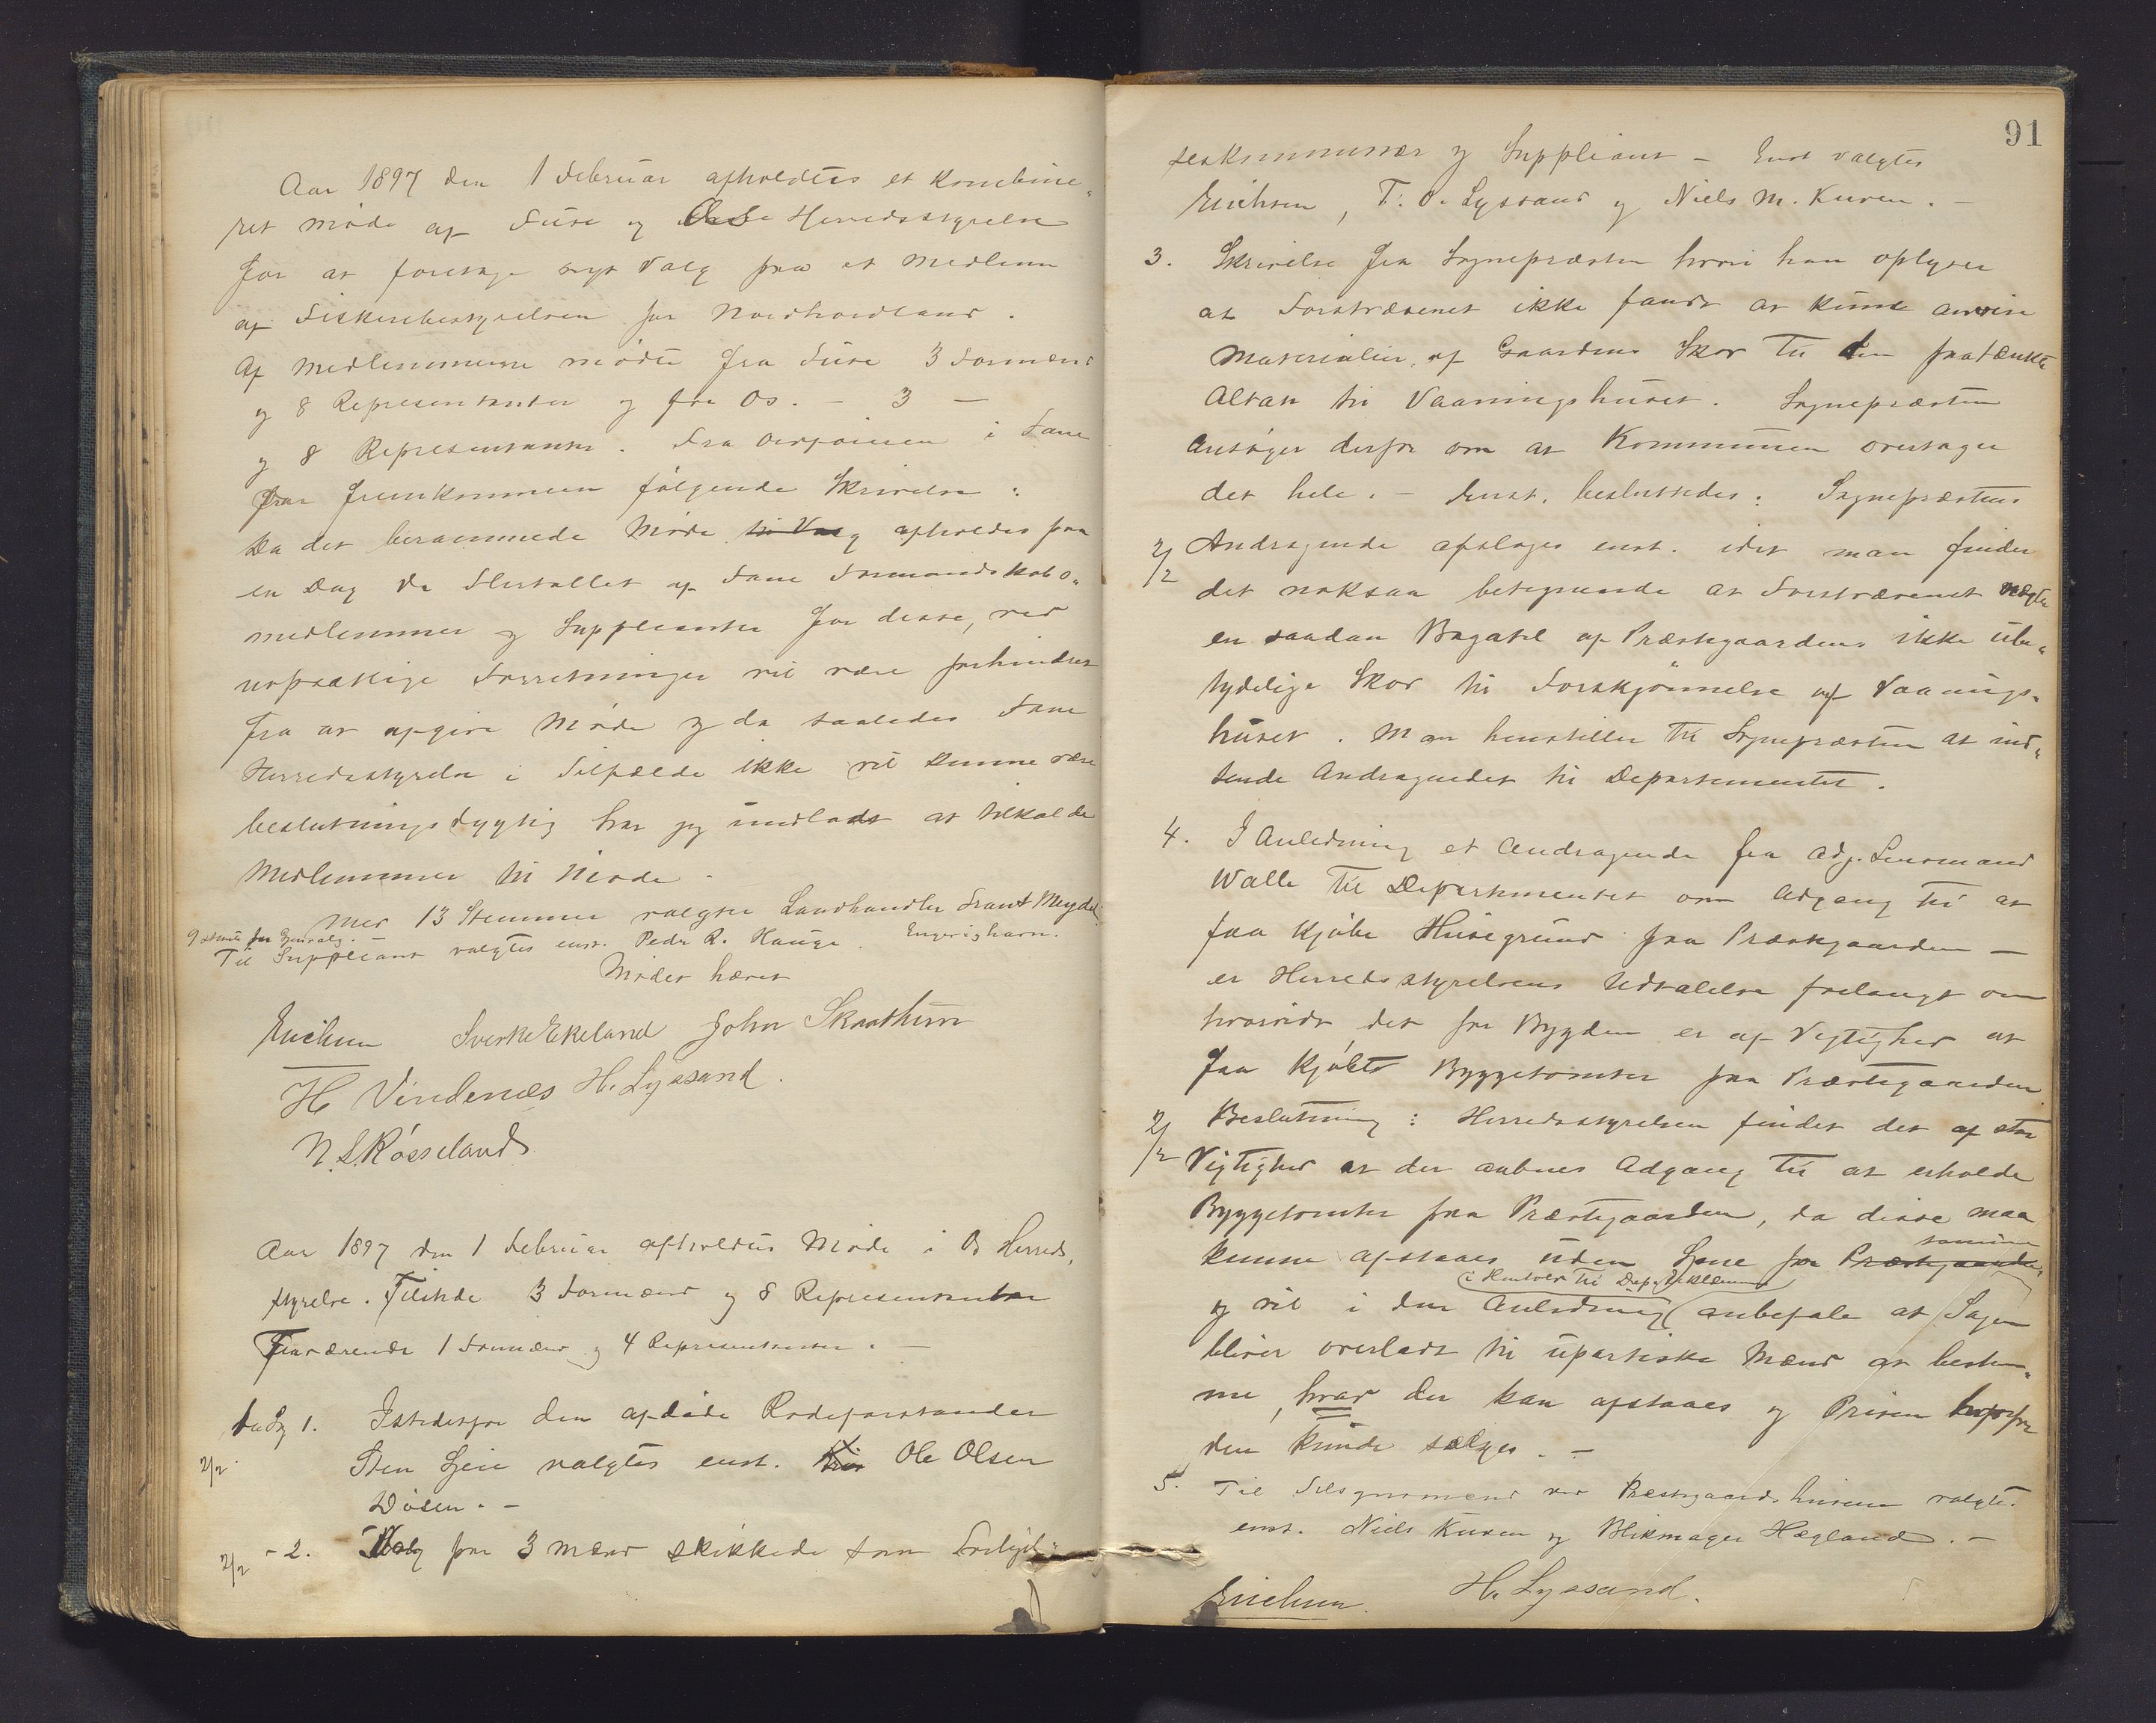 Aar 1897 den 1 Februar afholdtes et kombine„
ret møde af Fuse og Os Herredsstyrelse
for at foretage nyt Valg paa et Medlem
af Fiskeribestyrelsen for Nordhordland.
Af Medlemmerne mødte fra Fuse 3 Formænd
og 8 Repræsentanter og fra Os. - 3 -
og 8 Repræsentanter. Fra Ordføreren i Fane
var fremkommen følgende Skrivelse:
Da det berammede Møde til Valg afholdes paa
en Dag da Flertallet af Fane Formandskabs„
medlemmer og Suppleanter for disse, ved
uopsættlige Forretninger vil være forhindret
fra at afgive Møde og da saaledes Fane
Herredsstyrelse i Tilfælde ikke vil kunne være
beslutningsdygtig har jeg undladt at tilkalde
Medlemmer til Møde.
Med 13 Stemmer valgtes Landhandler Frant Meydel
9 stemte for Gjenvalg. Engevighavn.
Til Suppleant valgtes enst. Peder R. Hauge.
Mødet hævet
Erichsen Sverke Ekeland John Skaathun
H Vindenæs H. Lyssand.
N. L. Røsseland
Aar 1897 den 1 Februar afholdtes Møde i Os Herreds„
styrelse. Tilstede 3 Formænd og 8 Representanter
Fraværende 1 Formænd og 4 Representanter. -
1. Istedetfor den afdøde Rodeforstander
2/2 Sten Gjeie valgtes enst. Ole Olsen
Døsen. -
2/2 - 2. Valg paa 3 Mænd skikkede som Forligel„
91
seskommissær og Suppleant - Enst valgtes
Erichsen, T. O. Lyssand og Niels M. Kuven. -
3. Skrivelse fra Sognepræsten hvori han oplyser
at Forstvæsenet ikke fandt at kunne anvise
Materialier af Gaardens Skov til den paatænkte
Altan til Vaaningshuset. Sognepræsten
Ansøger derfor om at Kommunen overtager
det hele. - Enst. besluttedes: Sognepræstens
2/2 Andragende afslages enst. idet man finder
det noksaa betegnende at Forstvæsenet nægter
en saadan Bagatel af Præstegaardens ikke ube„
tydelige Skov til Forskjønnelse af Vaanings„
huset. Man henstiller til Sognepræsten at ind„
sende Andragendet til Departementet.
4. I Anledning et Andragende fra Adj. Lensmand
Walle til Departementet om Adgang til at
faa kjøbe Husegrund paa Præstegaarden -
er Herredsstyrelsens Udtalelse forlangt om
hvorvidt det for Bygden er af Vigtighed at
faa kjøbt Byggetomter paa Præstegaarden
2/2 Beslutning: Herredsstyrelsen finder det af stor
Vigtighed at der aabnes Adgang til at erholde
Byggetomter paa Præstegaarden, da disse maa
samme
kunne afstaaes uden Gene for Præstegaarden,
i Henhold til Dep.
og vil i den Anledning anbefale at Sagen
bliver overladt til upartiske Mænd at bestem„
me, hvad der kan afstaaes og Prisen hvorfor
den kunde sælges. -
5. Til Tilsynsmænd ved Præstegaardshusene valgtes
enst. Niels Kuven og Blikmager Hægland. -
Erichsen. H. Lyssand.